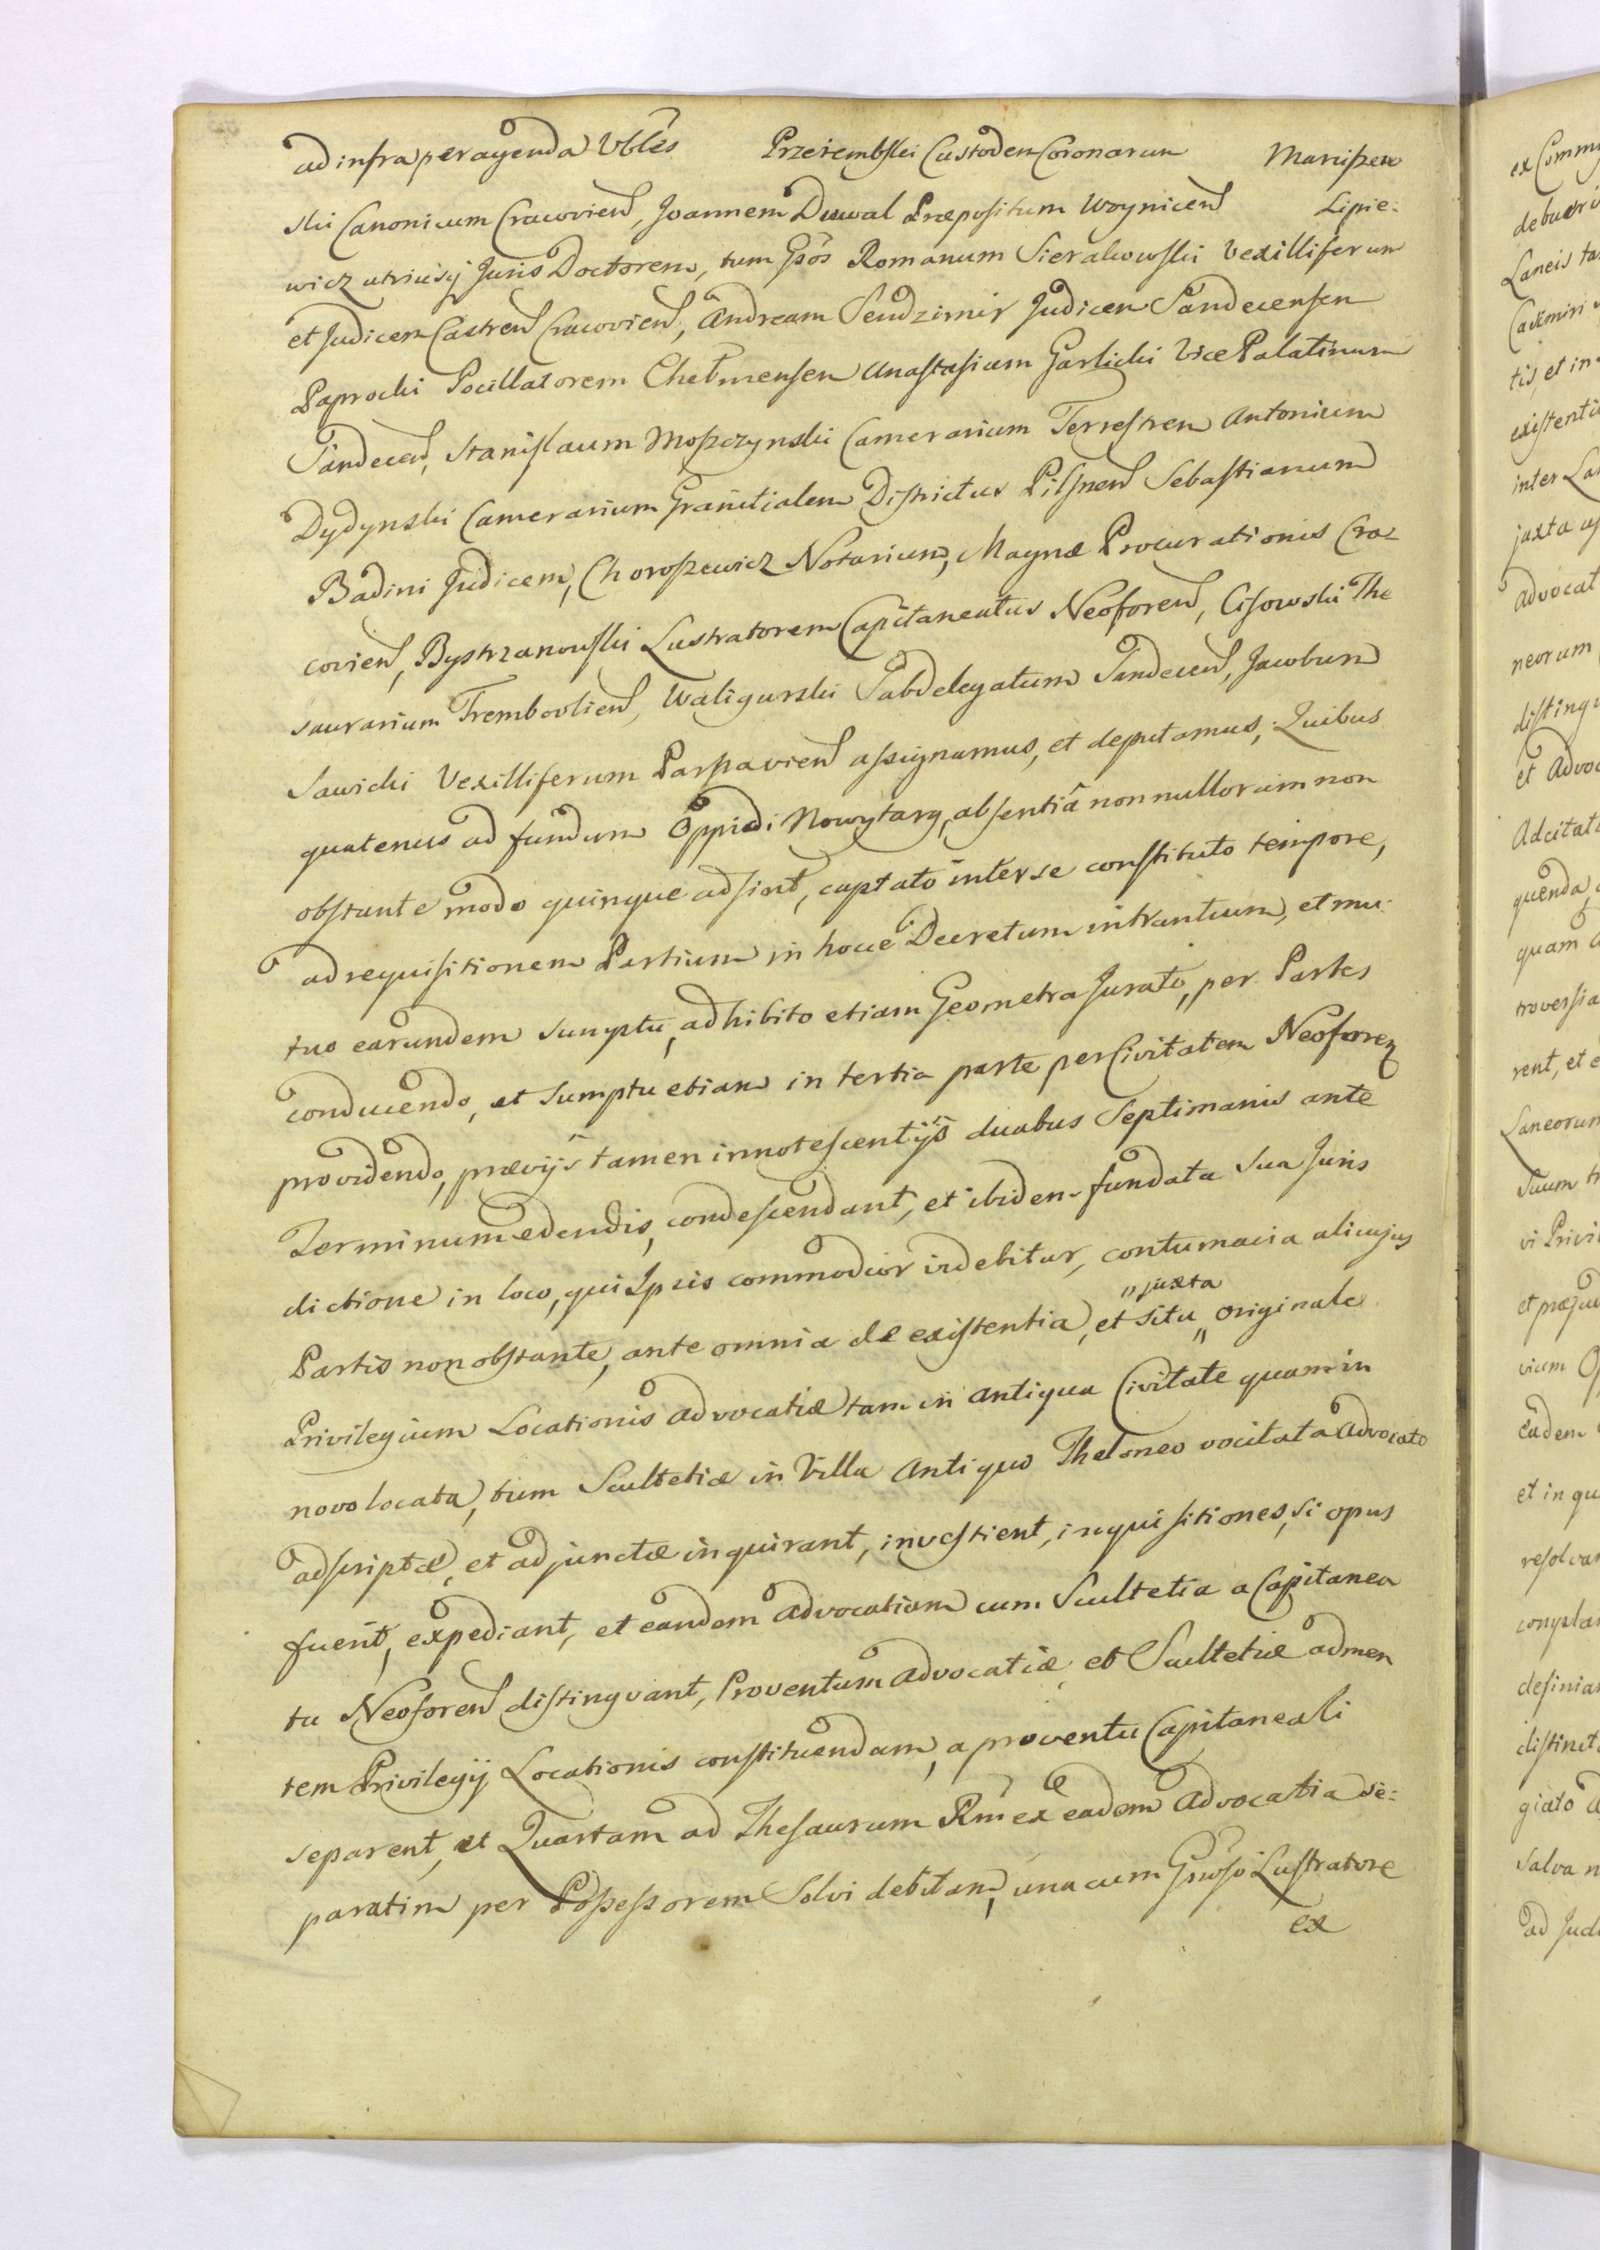 ad infra peragenda Vbles Przerembski Custodem Coronarum Maruszew
ski Canonicum Cracovien, Joannem Duwal Præpositum Woynicen Lipie:
wicz utriusq Juris Doctorem, tum Gsos Romanum Sierakowski Vexilliferum
et Judicem Castren Cracovien, Andream Sendzimir Judicem Sandecensem
Paprocki Pocillatorem Chełmensem Anastasium Garlicki Vice Palatinum
Sandecen, Stanislaum Moszczynski Camerarium Terrestrem Antonium
Dydynski Camerarium Granitialem Districtus Pilsnen Sebastianum
Badini Judicem, Choroszewicz Notarium, Magnæ Procurationis Cra-
covien, Bystrzanowski Lustratorem Capitaneatus Neoforen, Cisowski The
saurarium Trembovlien, Waligurski Subdelegatum Sandecen, Jacobum
Sawicki Vexilliferum Parnavien assignamus, et deputamus, Quibus
quatenus ad fundum Oppidi Nowytarg, absentiâ nonnullorum non
obstante modo quinque adsint, captato inter se constituto tempore,
ad requisitionem Partium in hocce Decretum intrantium, et mu:
tuo earundem sumptu, adhibito etiam Geometra Jurato, per Partes
conducendo, et Sumptu etiam in tertia parte per Civitatem Neoforen
providendo, prævijs tamen innotescentijs duabus Septimanis ante
Terminum edendis, condescendant, et ibidem fundata sua Juris
dictione in loco, qui Ipsis commodior videbitur, contumacia alicujus
Partis non obstante, ante omnia de existentia, et situ „ originale
„ juxta
Privilegium Locationis advocatiæ tam in antiqua Civitate quam in
novo locata, tum Scultetiæ in Villa Antiquo Theloneo vocitata Advocato
adscriptæ, et adjunctæ inquirant, investient, inquisitiones, si opus
fuerit, expediant, et eandem advocatiam cum Scultetia a Capitanea
tu Neoforen distingvant, Proventum advocatiæ, et Scultetiæ ad men
tem Privilegij Locationis constituendam, a proventu Capitaneali
separent, et Quartam ad Thesaurum Rni ex eadem Advocatia se:
paratim per Possessorem Solvi debitam, una cum Gnoso Lustratore
ex
ex Comm
debueri
Laneis ta
Casimiri
tis, et in
existentia
inter La
juxta
advocat
neorum
disting
et Advoc
Adcitat
quenda
quam
troversia
rent, et e
Laneorum
Suum
vi Privi
et præju
vium
eadem
et in qu
resolvan
complan
definian
distinct
giato
salva n
ad Judi